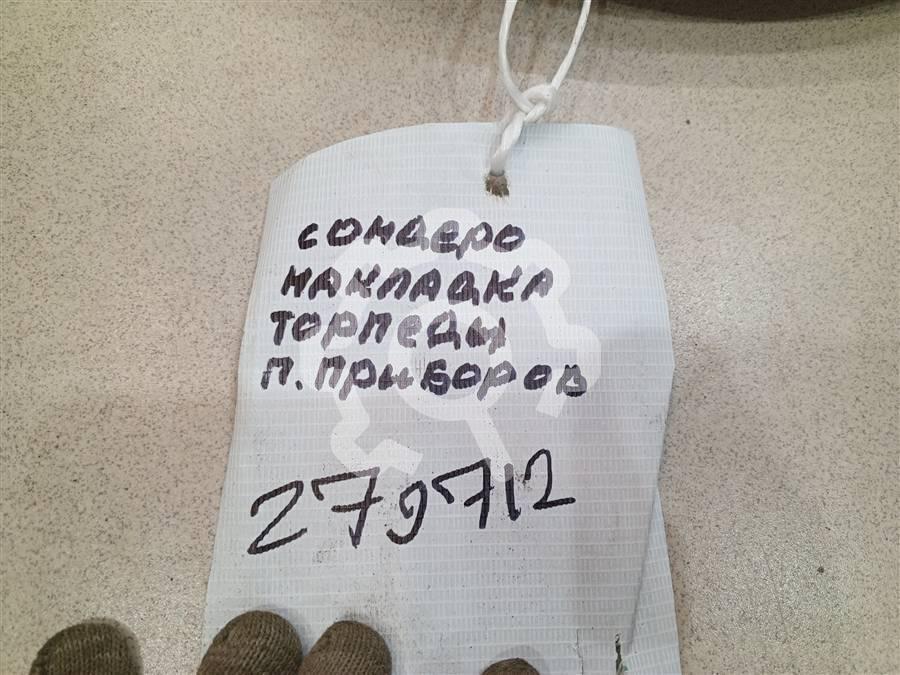 сондеро
накладка
торпеды
п. приборов
279712